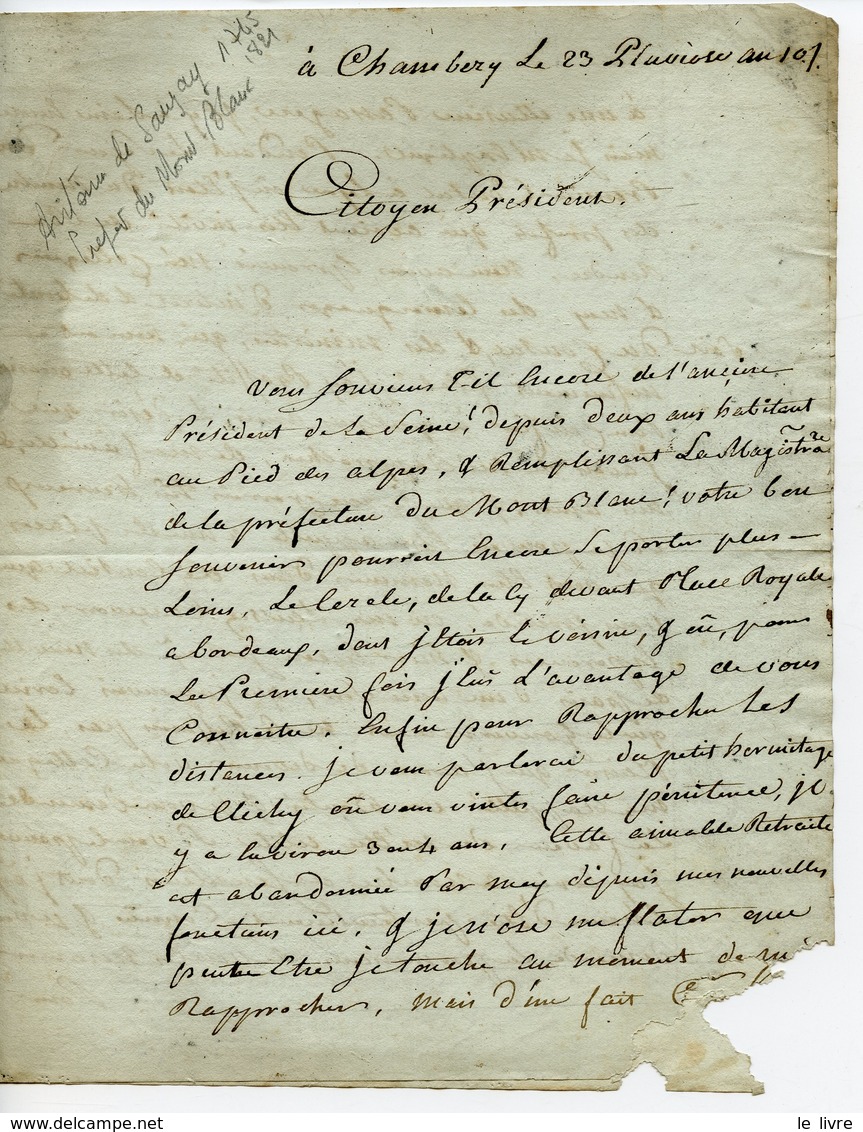 Antoine de Sauzay 1765
1821
Prefet du Mont Blanc
à Chambery Le 23 Pluviose an 10/.
Citoyen Président.
Vous Souvient T-il Encore de l'ancien
Président de la Seine! depuis deux ans habitant
au Pied des alpes, & Remplissant La Magistrare
de la préfecture du Mont Blanc! votre bon
Souvenir pourroit Encore Se porter plus-
Loins, Le Cercle, de la Cy devant Place Royale
a bordeaux, dont j'Etois le voisin, & où, pour
La Première fois j'Eus L'avantage de vous
Connoitre. Enfin pour Rapprocher Les
distances. je vous parlerai du petit hermitage
de Clichy où vous vintes faire pénitence, jl
y a Environ 3 ou 4 ans. Cette aimable Retraite
est abandonnée Par moy depuis mes nouvelles
fonctions ici. & je n'ose me flater que
peutetre Etre je touche au moment de m'
Rapprocher, mais d'une fait
le livre